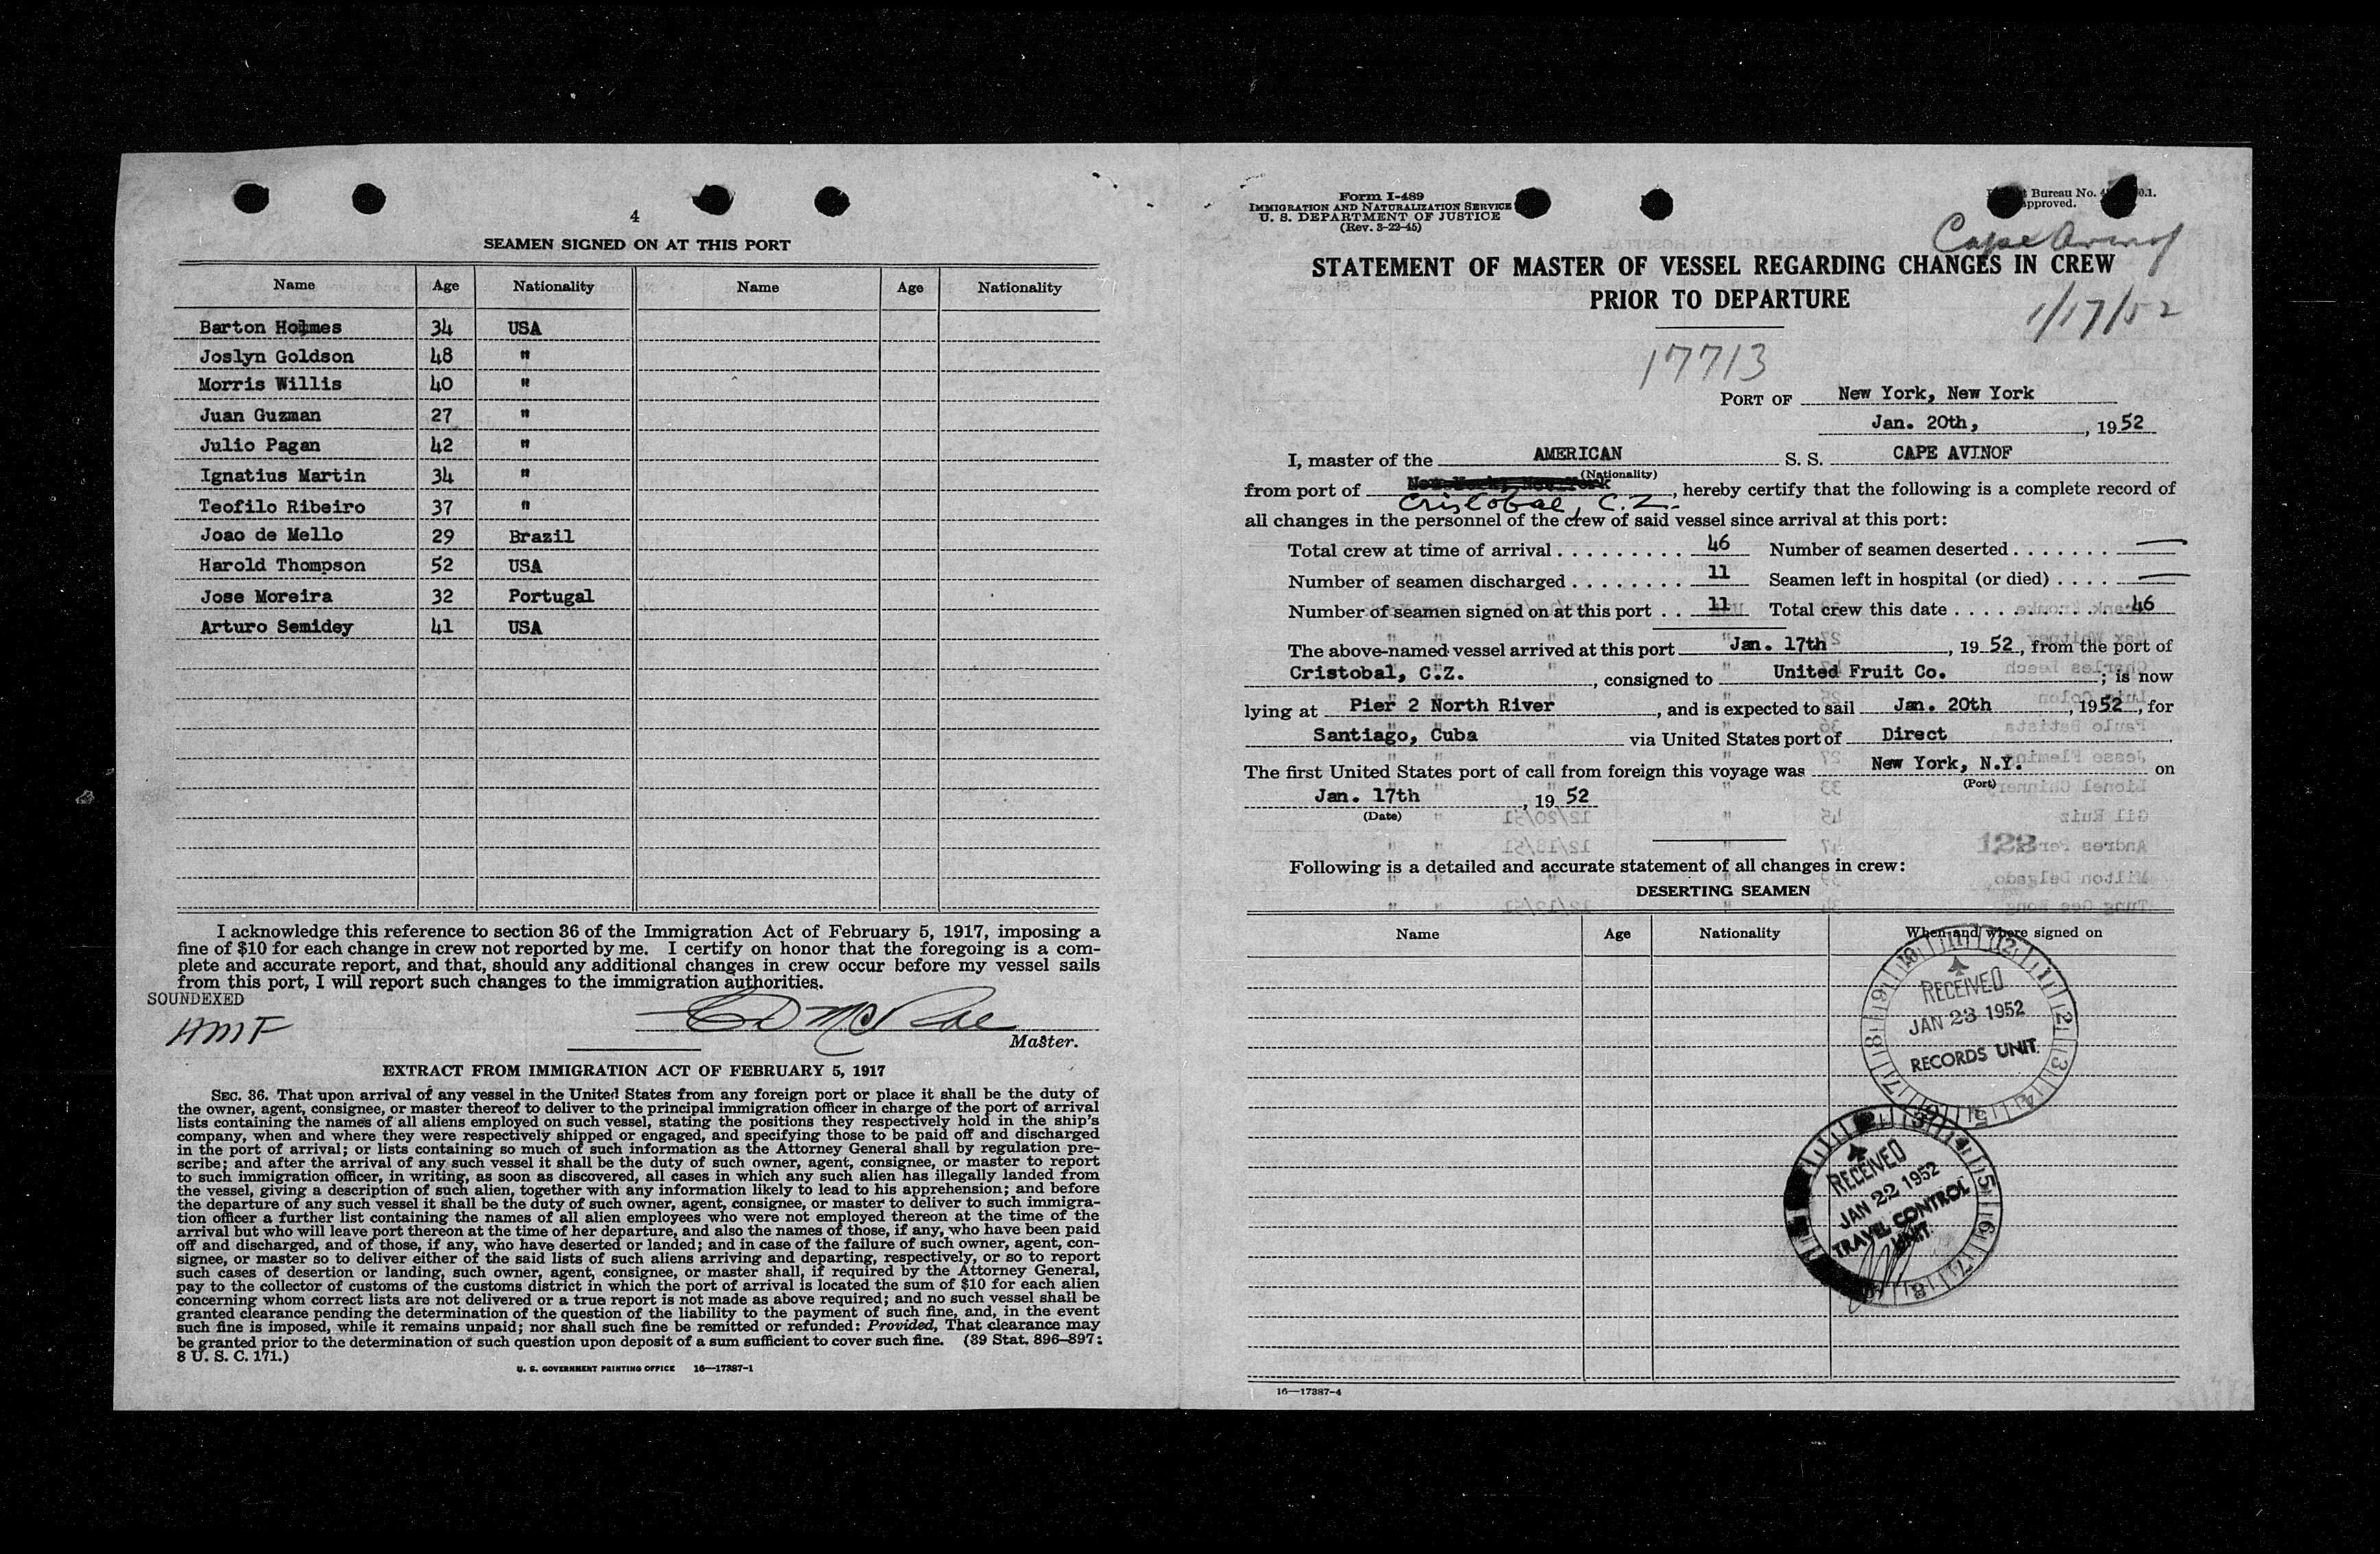 4
SEAMEN SIGNED ON AT THIS PORT
Name Age Nationality Name Age Nationality
Barton Holmes 34 USA
Joslyn Goldson 48 "
Morris Willis 40 "
Juan Guzman 27 "
Julio Pagan 42 "
Ignatius Martin 34 "
Teofilo Ribeiro 37 "
Joao de Mello 29 Brazil
Harold Thompson 52 USA
Jose Moreira 32 Portugal
Arturo Semidey 41 USA
I acknowledge this reference to section 36 of the Immigration Act of February 5, 1917, imposing a
fine of $10 for each change in crew not reported by me. I certify on honor that the foregoing is a com-
plete and accurate report, and that, should any additional changes in crew occur before my vessel sails
from this port, I will report such changes to the immigration authorities.
SOUNDEXED
HMF
Master.
EXTRACT FROM IMMIGRATION ACT OF FEBRUARY 5, 1917
SEC. 36. That upon arrival of any vessel in the United States from any foreign port or place it shall be the duty of
the owner, agent, consignee, or master thereof to deliver to the principal immigration officer in charge of the port of arrival
lists containing the names of all aliens employed on such vessel, stating the positions they respectively hold in the ship's
company, when and where they were respectively shipped or engaged, and specifying those to be paid off and discharged
in the port of arrival; or lists containing so much of such information as the Attorney General shall by regulation pre-
scribe; and after the arrival of any such vessel it shall be the duty of such owner, agent, consignee, or master to report
to such immigration officer, in writing, as soon as discovered, all cases in which any such alien has illegally landed from
the vessel, giving a description of such alien, together with any information likely to lead to his apprehension; and before
the departure of any such vessel it shall be the duty of such owner, agent, consignee, or master to deliver to such immigra-
tion officer a further list containing the names of all alien employees who were not employed thereon at the time of the
arrival but who will leave port thereon at the time of her departure, and also the names of those, if any, who have been paid
off and discharged, and of those, if any, who have deserted or landed; and in case of the failure of such owner, agent, con-
signee, or master so to deliver either of the said lists of such aliens arriving and departing, respectively, or so to report
such cases of desertion or landing, such owner, agent, consignee, or master shall, if required by the Attorney General,
pay to the collector of customs of the customs district in which the port of arrival is located the sum of $10 for each alien
concerning whom correct lists are not delivered or a true report is not made as above required; and no such vessel shall be
granted clearance pending the determination of the question of the liability to the payment of such fine, and, in the event
such fine is imposed, while it remains unpaid; nor shall such fine be remitted or refunded: Provided, That clearance may
be granted prior to the determination of such question upon deposit of a sum sufficient to cover such fine. (39 Stat. 896–897:
8 U. S. C. 171.)
U. S. GOVERNMENT PRINTING OFFICE 16—17387-1
Form I-489
IMMIGRATION AND NATURALIZATION SERVICE
U. S. DEPARTMENT OF JUSTICE
(Rev. 3-22-45)
Bureau No.
approved.
Cape Avinof
STATEMENT OF MASTER OF VESSEL REGARDING CHANGES IN CREW
PRIOR TO DEPARTURE
1/17/52
17713
PORT OF New York, New York
Jan. 20th, , 1952
I, master of the AMERICAN S. S. CAPE AVINOF
(Nationality)
from port of Cristobal, C.Z. , hereby certify that the following is a complete record of
all changes in the personnel of the crew of said vessel since arrival at this port:
Total crew at time of arrival . . . . . . . . . 46 Number of seamen deserted . . . . . . . —
Number of seamen discharged . . . . . . . . 11 Seamen left in hospital (or died) . . . . —
Number of seamen signed on at this port . . 11 Total crew this date . . . . . . . . . . 46
The above-named vessel arrived at this port Jan. 17th , 1952, from the port of
Cristobal, C.Z. , consigned to United Fruit Co. ; is now
lying at Pier 2 North River , and is expected to sail Jan. 20th , 1952, for
Santiago, Cuba via United States port of Direct
The first United States port of call from foreign this voyage was New York, N.Y. on
(Port)
Jan. 17th , 1952
(Date)
128
Following is a detailed and accurate statement of all changes in crew:
DESERTING SEAMEN
Name Age Nationality When and where signed on
RECEIVED
JAN 23 1952
RECORDS UNIT
RECEIVED
JAN 22 1952
TRAVEL CONTROL
UNIT.
16—17387-4